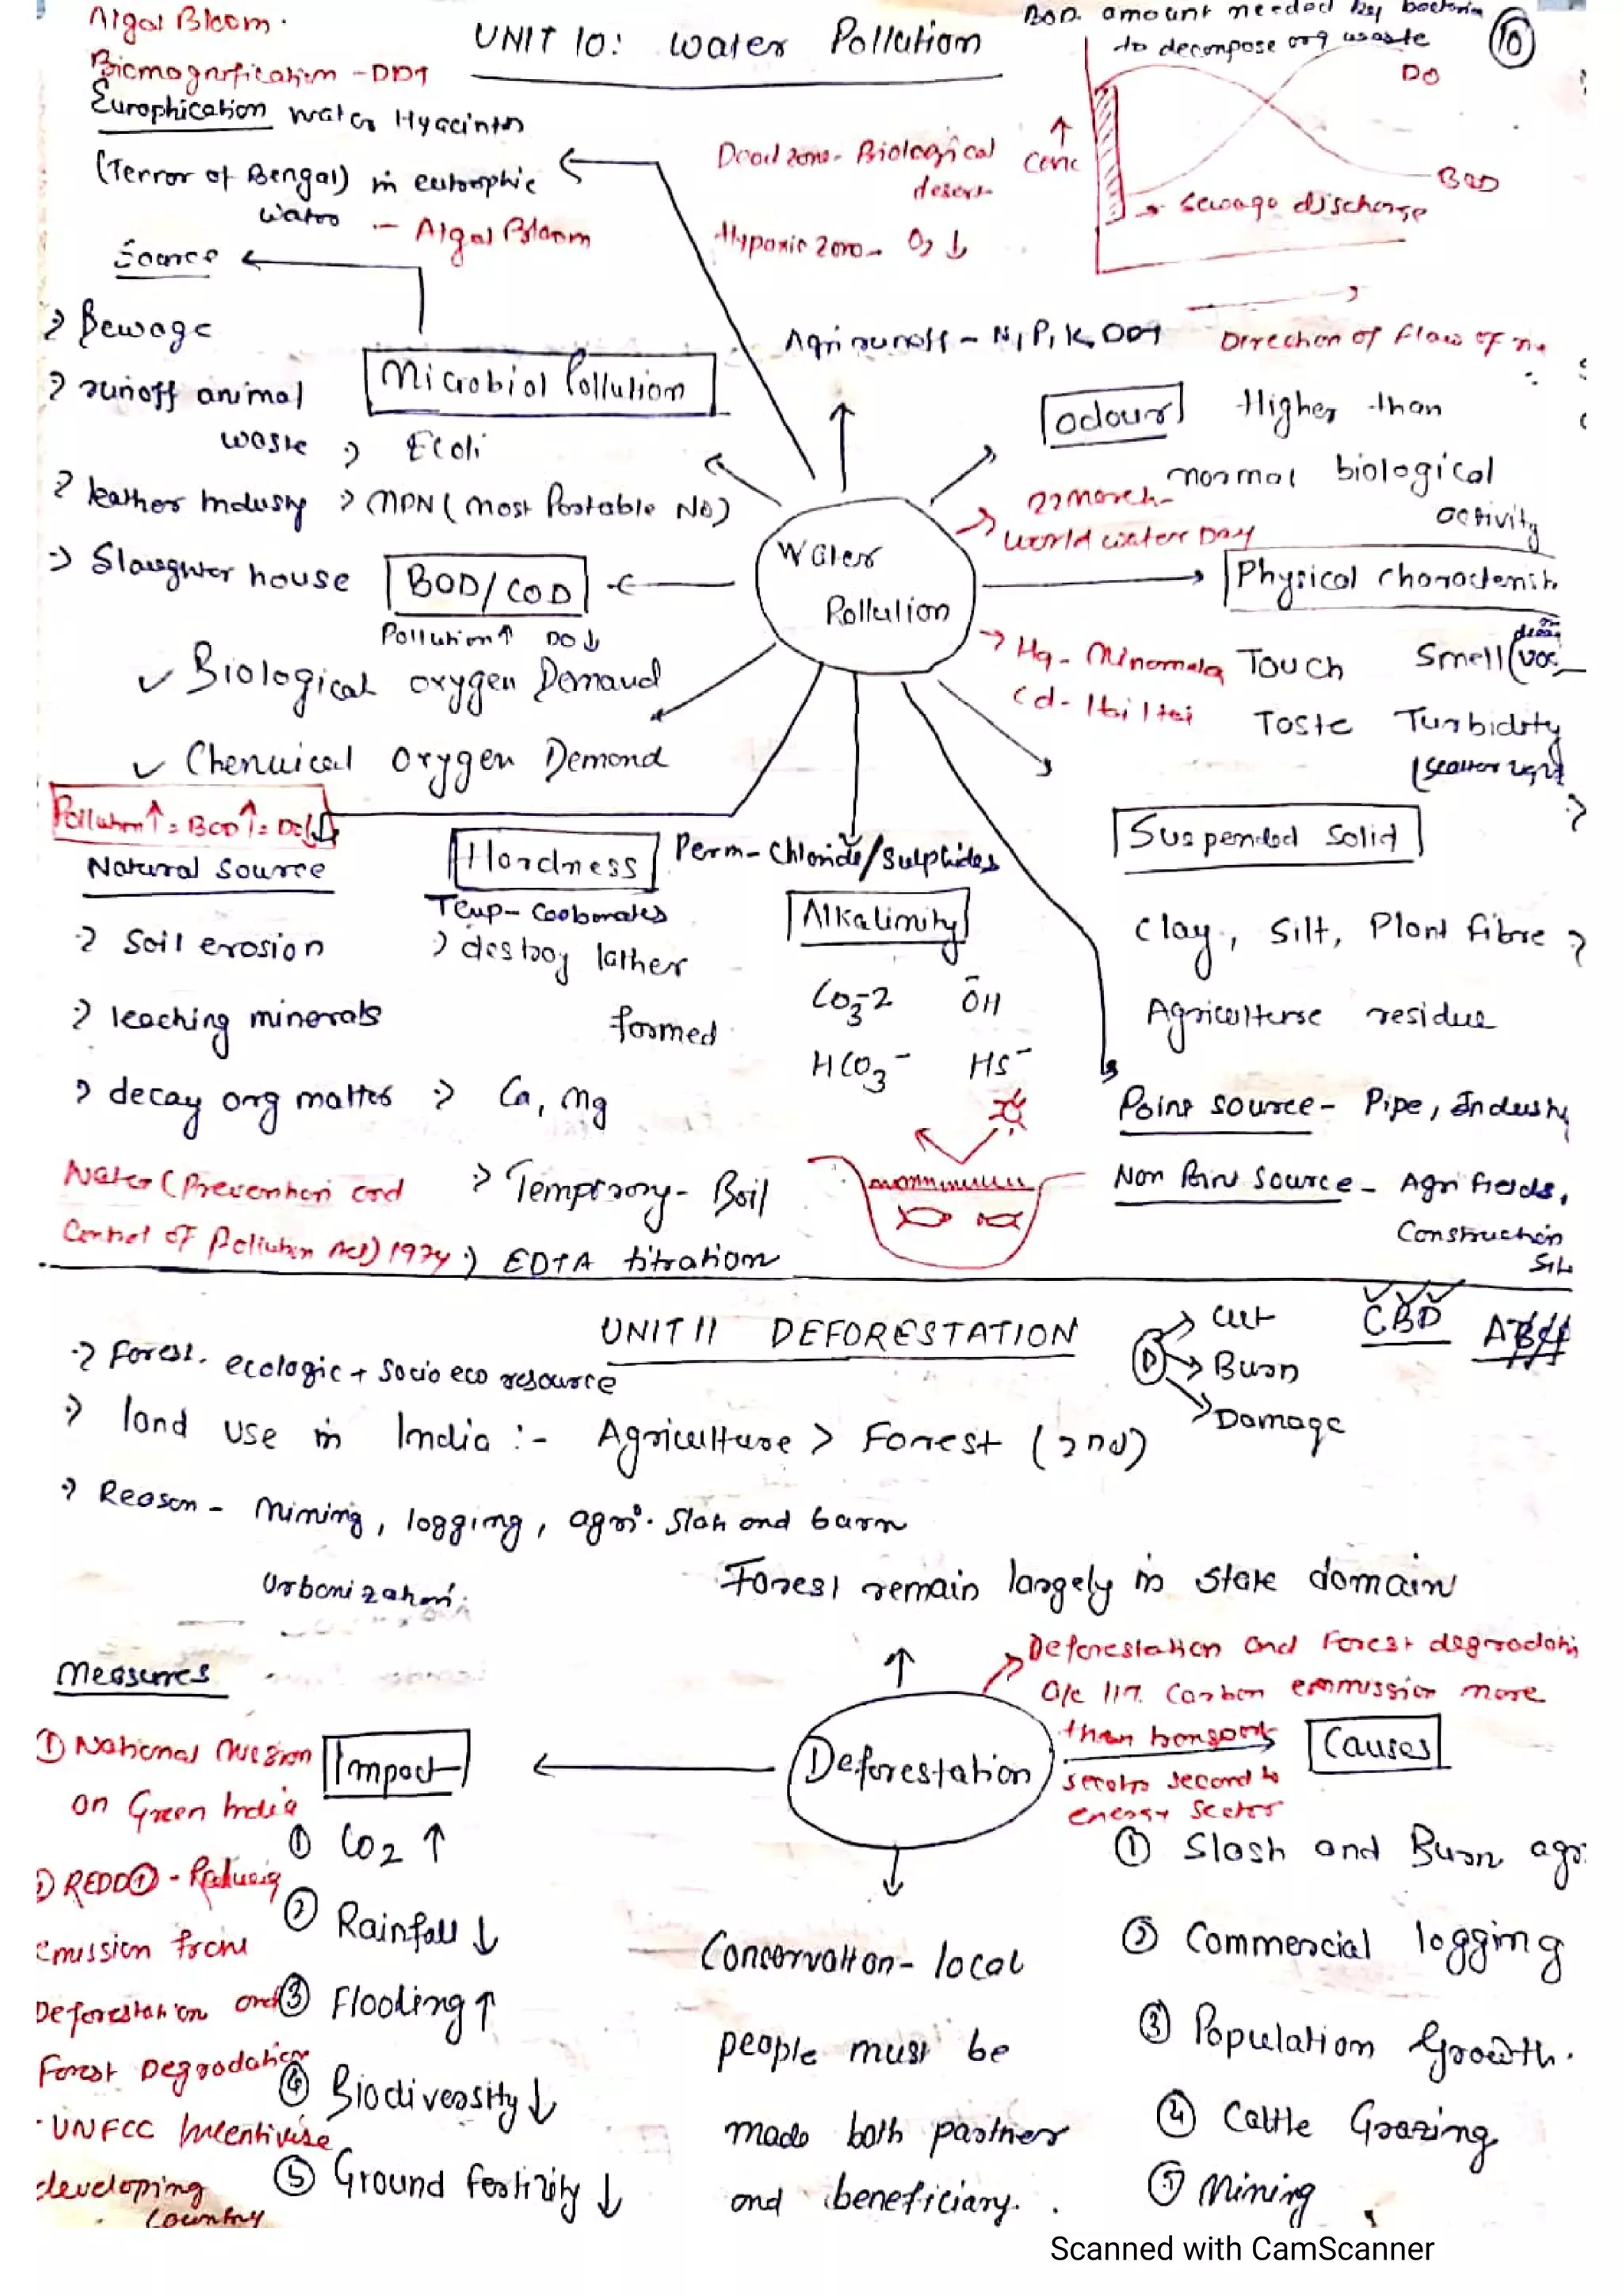 Algal Bloom.
Biomagnification - DDT
UNIT 10: Water Pollution
BOD. amount needed by bacteria
to decompose org waste
10
Europhication water Hyacinth
(Terror of Bengal) in eutrophic
water - Algal Bloom
Dead zone - Biological
desert
Hypoxic zone - O2 ↓
↑
Conc
DO
BOD
→ Sewage discharge
Direction of flow of
Agri runoff - N, P, K, DDT
Source
→ Sewage
→ runoff animal
waste
→ leather Industry
→ Slaughter house
Microbial Pollution
→ Ecoli
→ MPN (Most Portable No)
BOD/COD
Pollution ↑ DO ↓
✓ Biological oxygen Demand
✓ Chemical Oxygen Demond
Pollution ↑ = BOD ↑ = DO ↓
Water
Pollution
Odour Higher than
normal biological
activity
22 March -
World water Day
Physical Charocterist.
→ Hg - Minamata
Cd - Itai Itai
Touch Smell (VOC
Taste Turbidity
(scatter light
Suspended Solid
Clay, Silt, Plant fibre
Agriculture residue
Natural Source
→ Soil erosion
→ leaching minerals
→ decay org matter
Water (Prevention and
Control of Pollution Act) 1974
Hardness
Perm - Chloride/Sulphides
Temp - Carbonates
→ destroy lather
formed
→ Ca, Mg
→ Temporary - Boil
→ EDTA titration
Alkalinity
CO3-2 OH-
HCO3- HS-
Point source - Pipe, Industry
Non Point Source - Agri fields,
Construction
Site
UNIT 11 DEFORESTATION
D → Cut
→ Burn
→ Damage
CBD
→ Forest. ecologic + Socio eco resource
→ land use in India :- Agriculture > Forest (2nd)
→ Reason - Mining, logging, agri. Slah and burn
Urbanization.
Forest remain largely in state domain
Deforestation and Forest degradation
a/c 11% Carbon emmission more
than transport
sector second to
energy sector
Measures
① National Mission
on Green India
REDD+ - Reducing
emission from
Deforestation and
Forest Degradation
UNFCC Incentivise
developing
Country
Impact
① CO2 ↑
② Rainfall ↓
③ Flooding ↑
④ Biodiversity ↓
⑤ Ground fertility ↓
Deforestation
Conservation - local
people must be
made both partner
and beneficiary.
Causes
① Slash and Burn agr.
② Commercial logging
③ Population Growth.
④ Cattle Grazing
⑤ Mining
Scanned with CamScanner